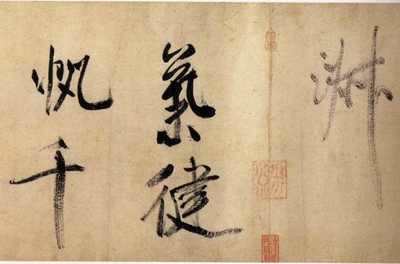 淑
氣健
帆千